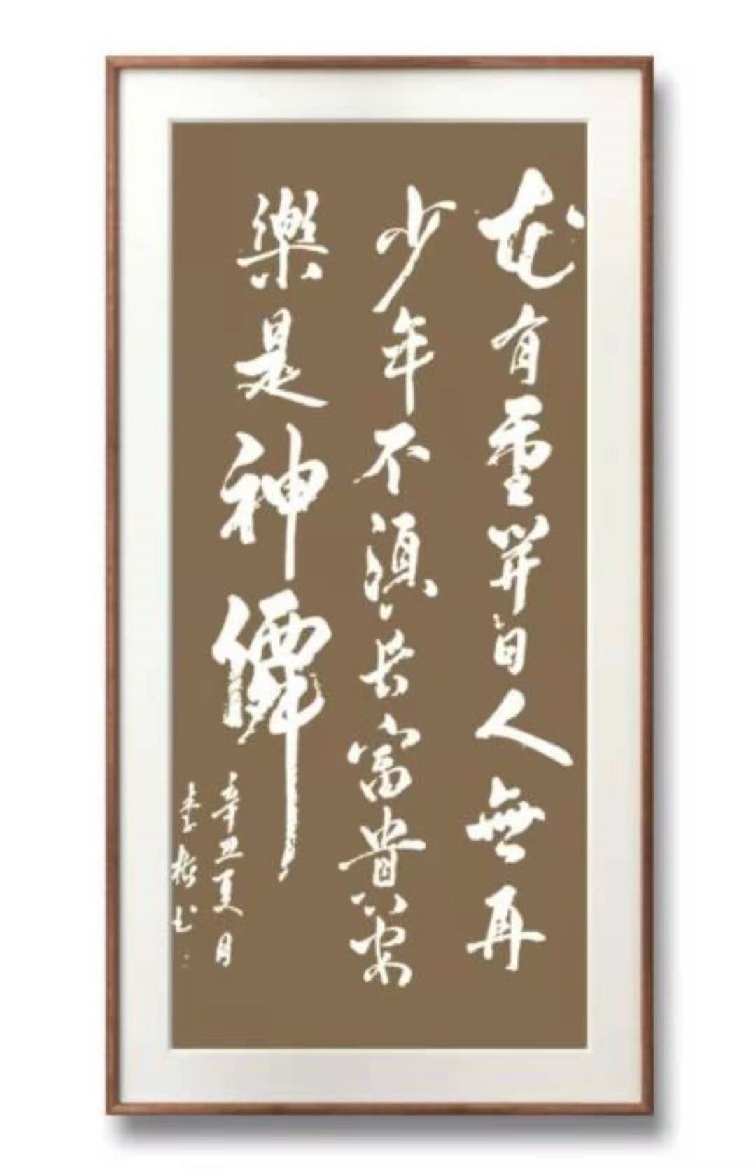 花有重開日人無再
少年不須長富貴安
樂是神僊
辛丑夏月
书